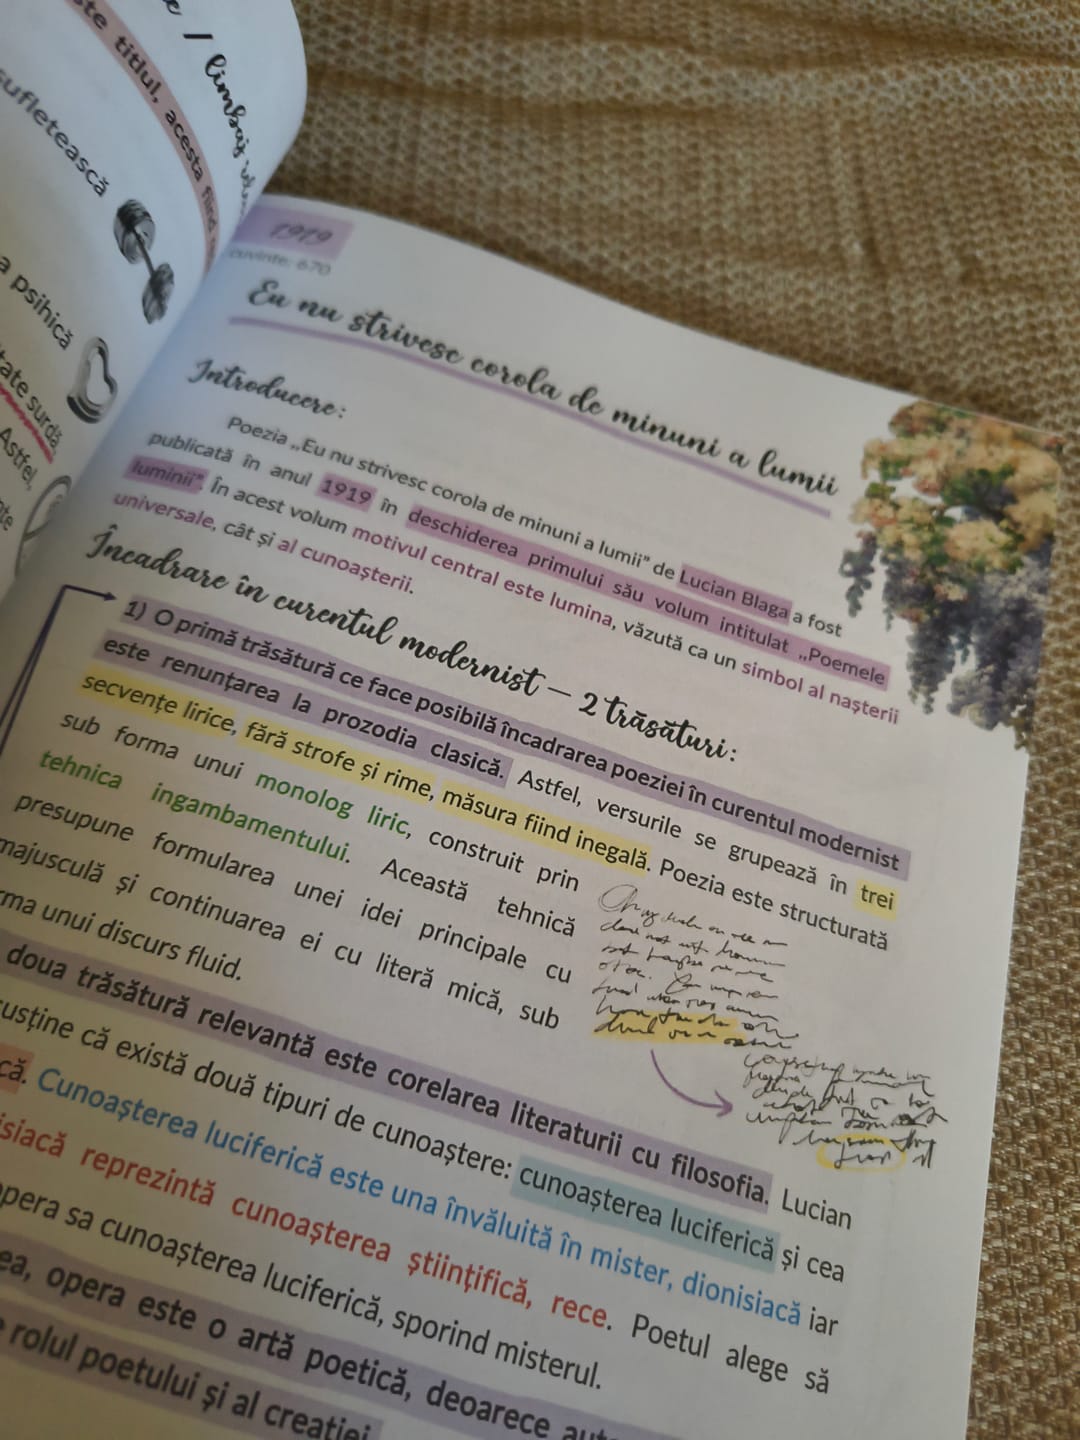 / limbaj
ste titlul, acesta fiind
sufletească
a psihică
tate surdă,
Astfel,
1919
cuvinte: 670
Eu nu strivesc corola de minuni a lumii
Introducere:
Poezia „Eu nu strivesc corola de minuni a lumii” de Lucian Blaga a fost
publicată în anul 1919 în deschiderea primului său volum intitulat „Poemele
luminii”. În acest volum motivul central este lumina, văzută ca un simbol al nașterii
universale, cât și al cunoașterii.
Încadrare în curentul modernist – 2 trăsături:
1) O primă trăsătură ce face posibilă încadrarea poeziei în curentul modernist
este renunțarea la prozodia clasică. Astfel, versurile se grupează în trei
secvențe lirice, fără strofe și rime, măsura fiind inegală. Poezia este structurată
sub forma unui monolog liric, construit prin
tehnica ingambamentului. Această tehnică
presupune formularea unei idei principale cu
majusculă și continuarea ei cu literă mică, sub
rma unui discurs fluid.
doua trăsătură relevantă este corelarea literaturii cu filosofia. Lucian
susține că există două tipuri de cunoaștere: cunoașterea luciferică și cea
că. Cunoașterea luciferică este una învăluită în mister, dionisiacă iar
siacă reprezintă cunoașterea științifică, rece. Poetul alege să
pera sa cunoașterea luciferică, sporind misterul.
ea, opera este o artă poetică, deoarece
rolul poetului și al creației